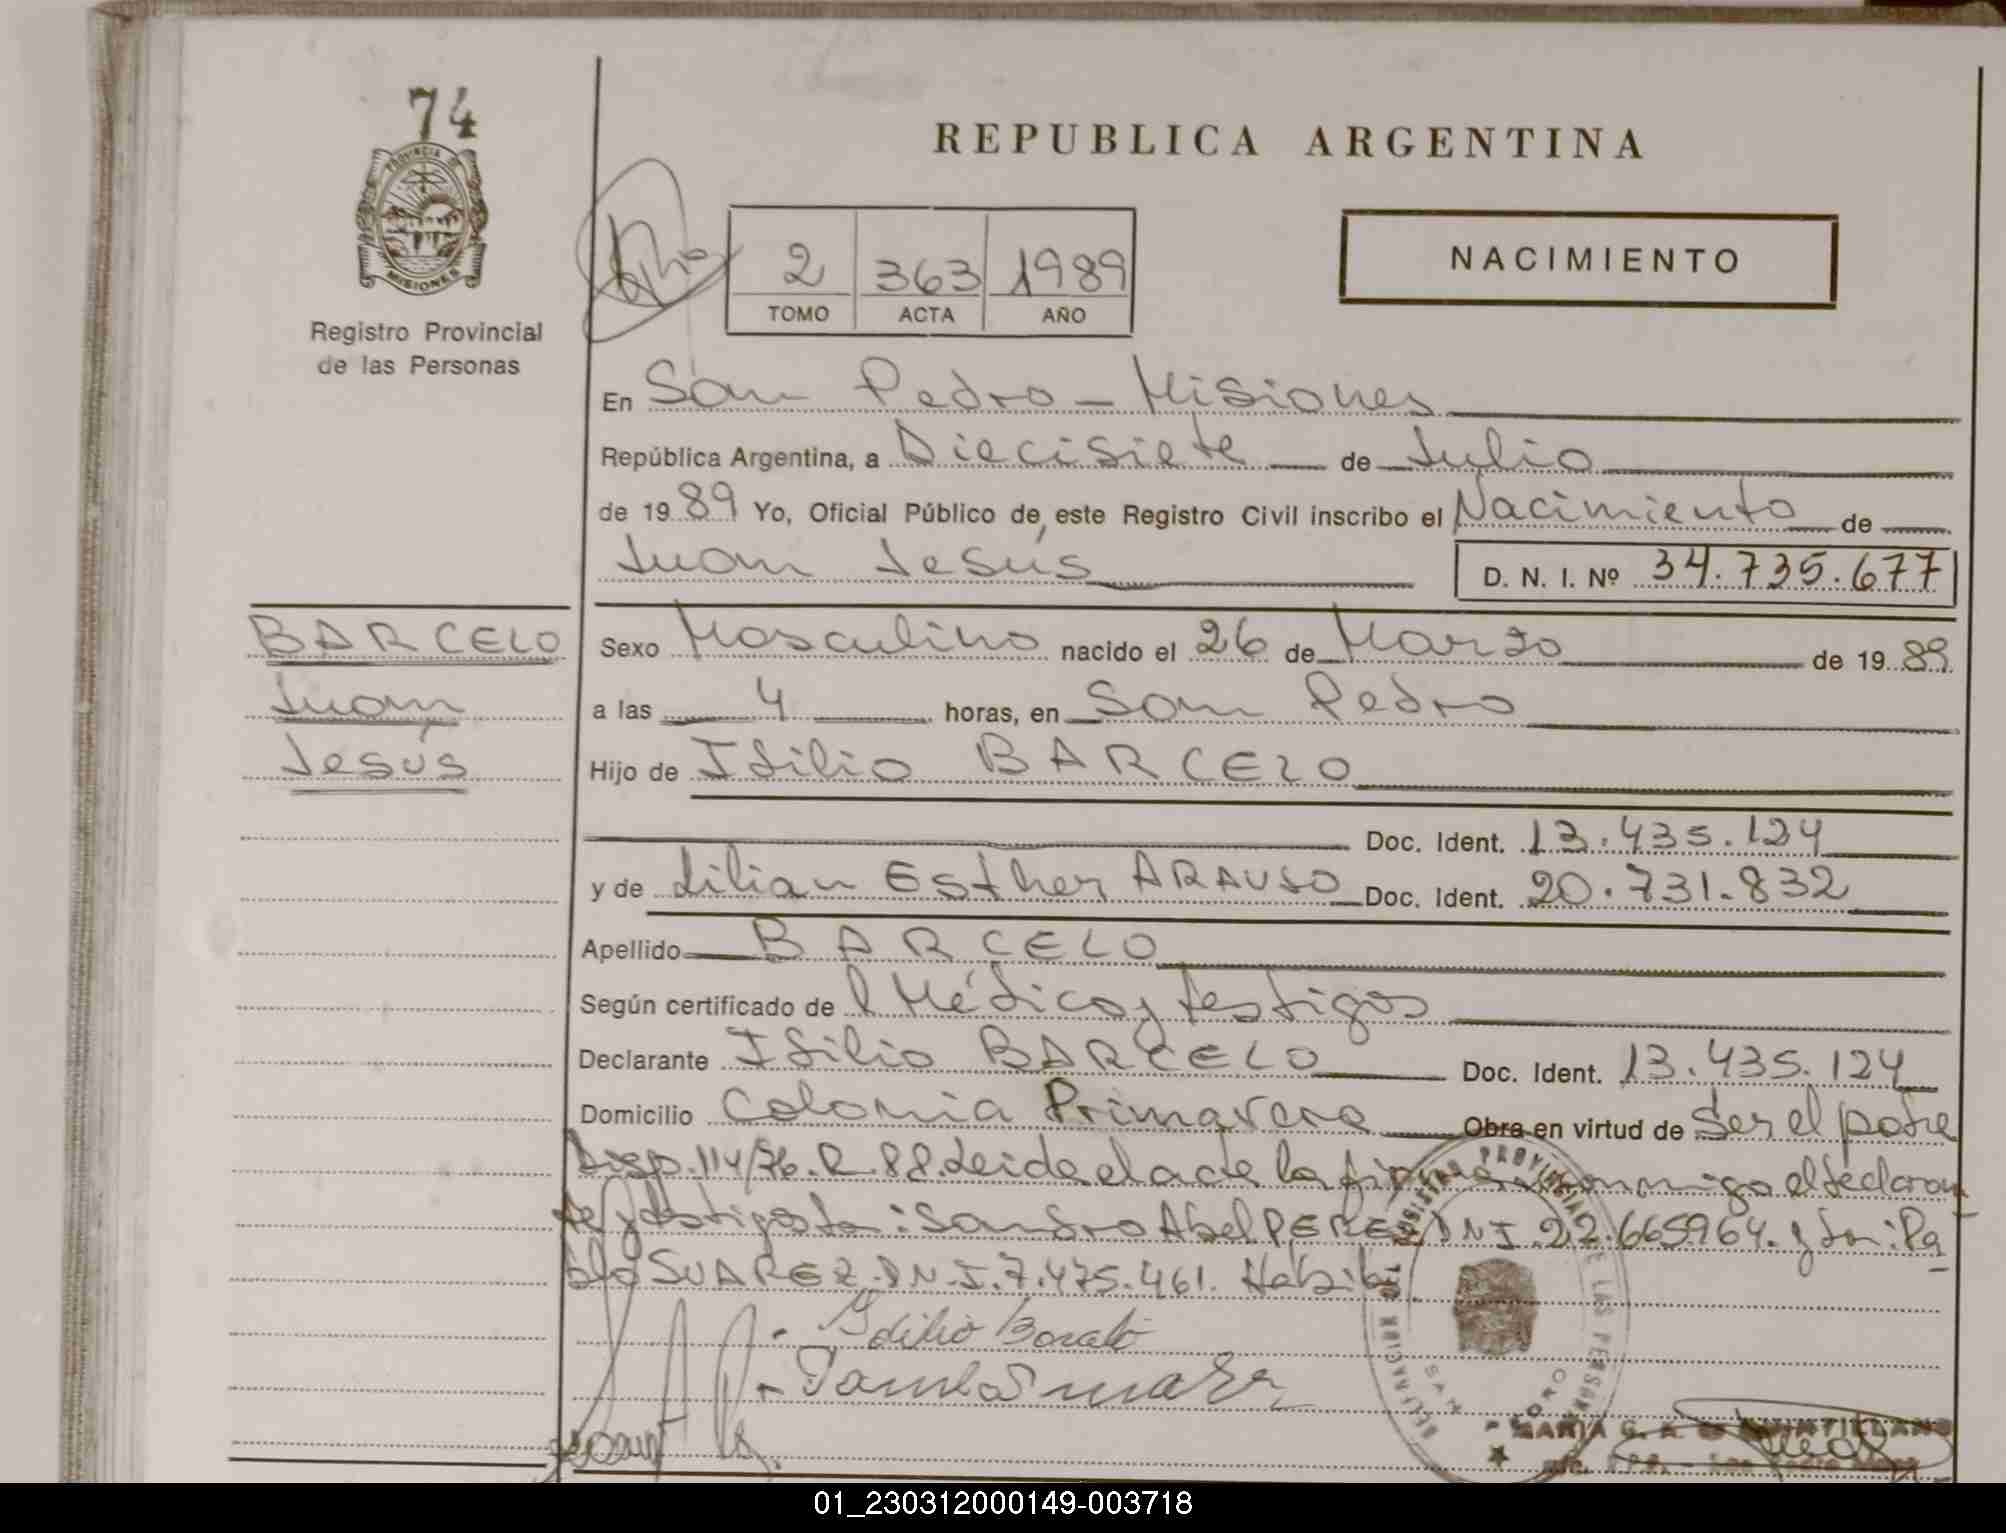 74
PROVINCIA D
MISIONES
Registro Provincial
de las Personas
REPUBLICA ARGENTINA
2 363 1989
TOMO ACTA AÑO
NACIMIENTO
En San Pedro - Misiones
República Argentina, a Diecisiete de Julio
de 1989 Yo, Oficial Público de este Registro Civil inscribo el Nacimiento de
Juan Jesús D. N. I. Nº 34.735.677
BARCELO
Juan
Jesús
Sexo Masculino nacido el 26 de Marzo de 1989
a las 4 horas, en San Pedro
Hijo de Idilio BARCELO
Doc. Ident. 13.435.124
y de Lilian Esther ARAUJO Doc. Ident. 20.731.832
Apellido BARCELO
Según certificado de l Médico y testigos
Declarante Idilio BARCELO Doc. Ident. 13.435.124
Domicilio Colonia Primavera Obra en virtud de Ser el padre
Disp. 114/76. R. 88. Leida el acta la firma conmigo el declaran
te y testigos Sandro Abel PEREZ DNI. 22.665964. y Pa
blo SUAREZ. DN.I. 7.475.461.
Idilio Barceló
REGISTRO PROVINCIAL DE LAS PERSONAS
DELEGACION
SAN PEDRO
MARIA G. A. de QUINTILLANO
01_230312000149-003718